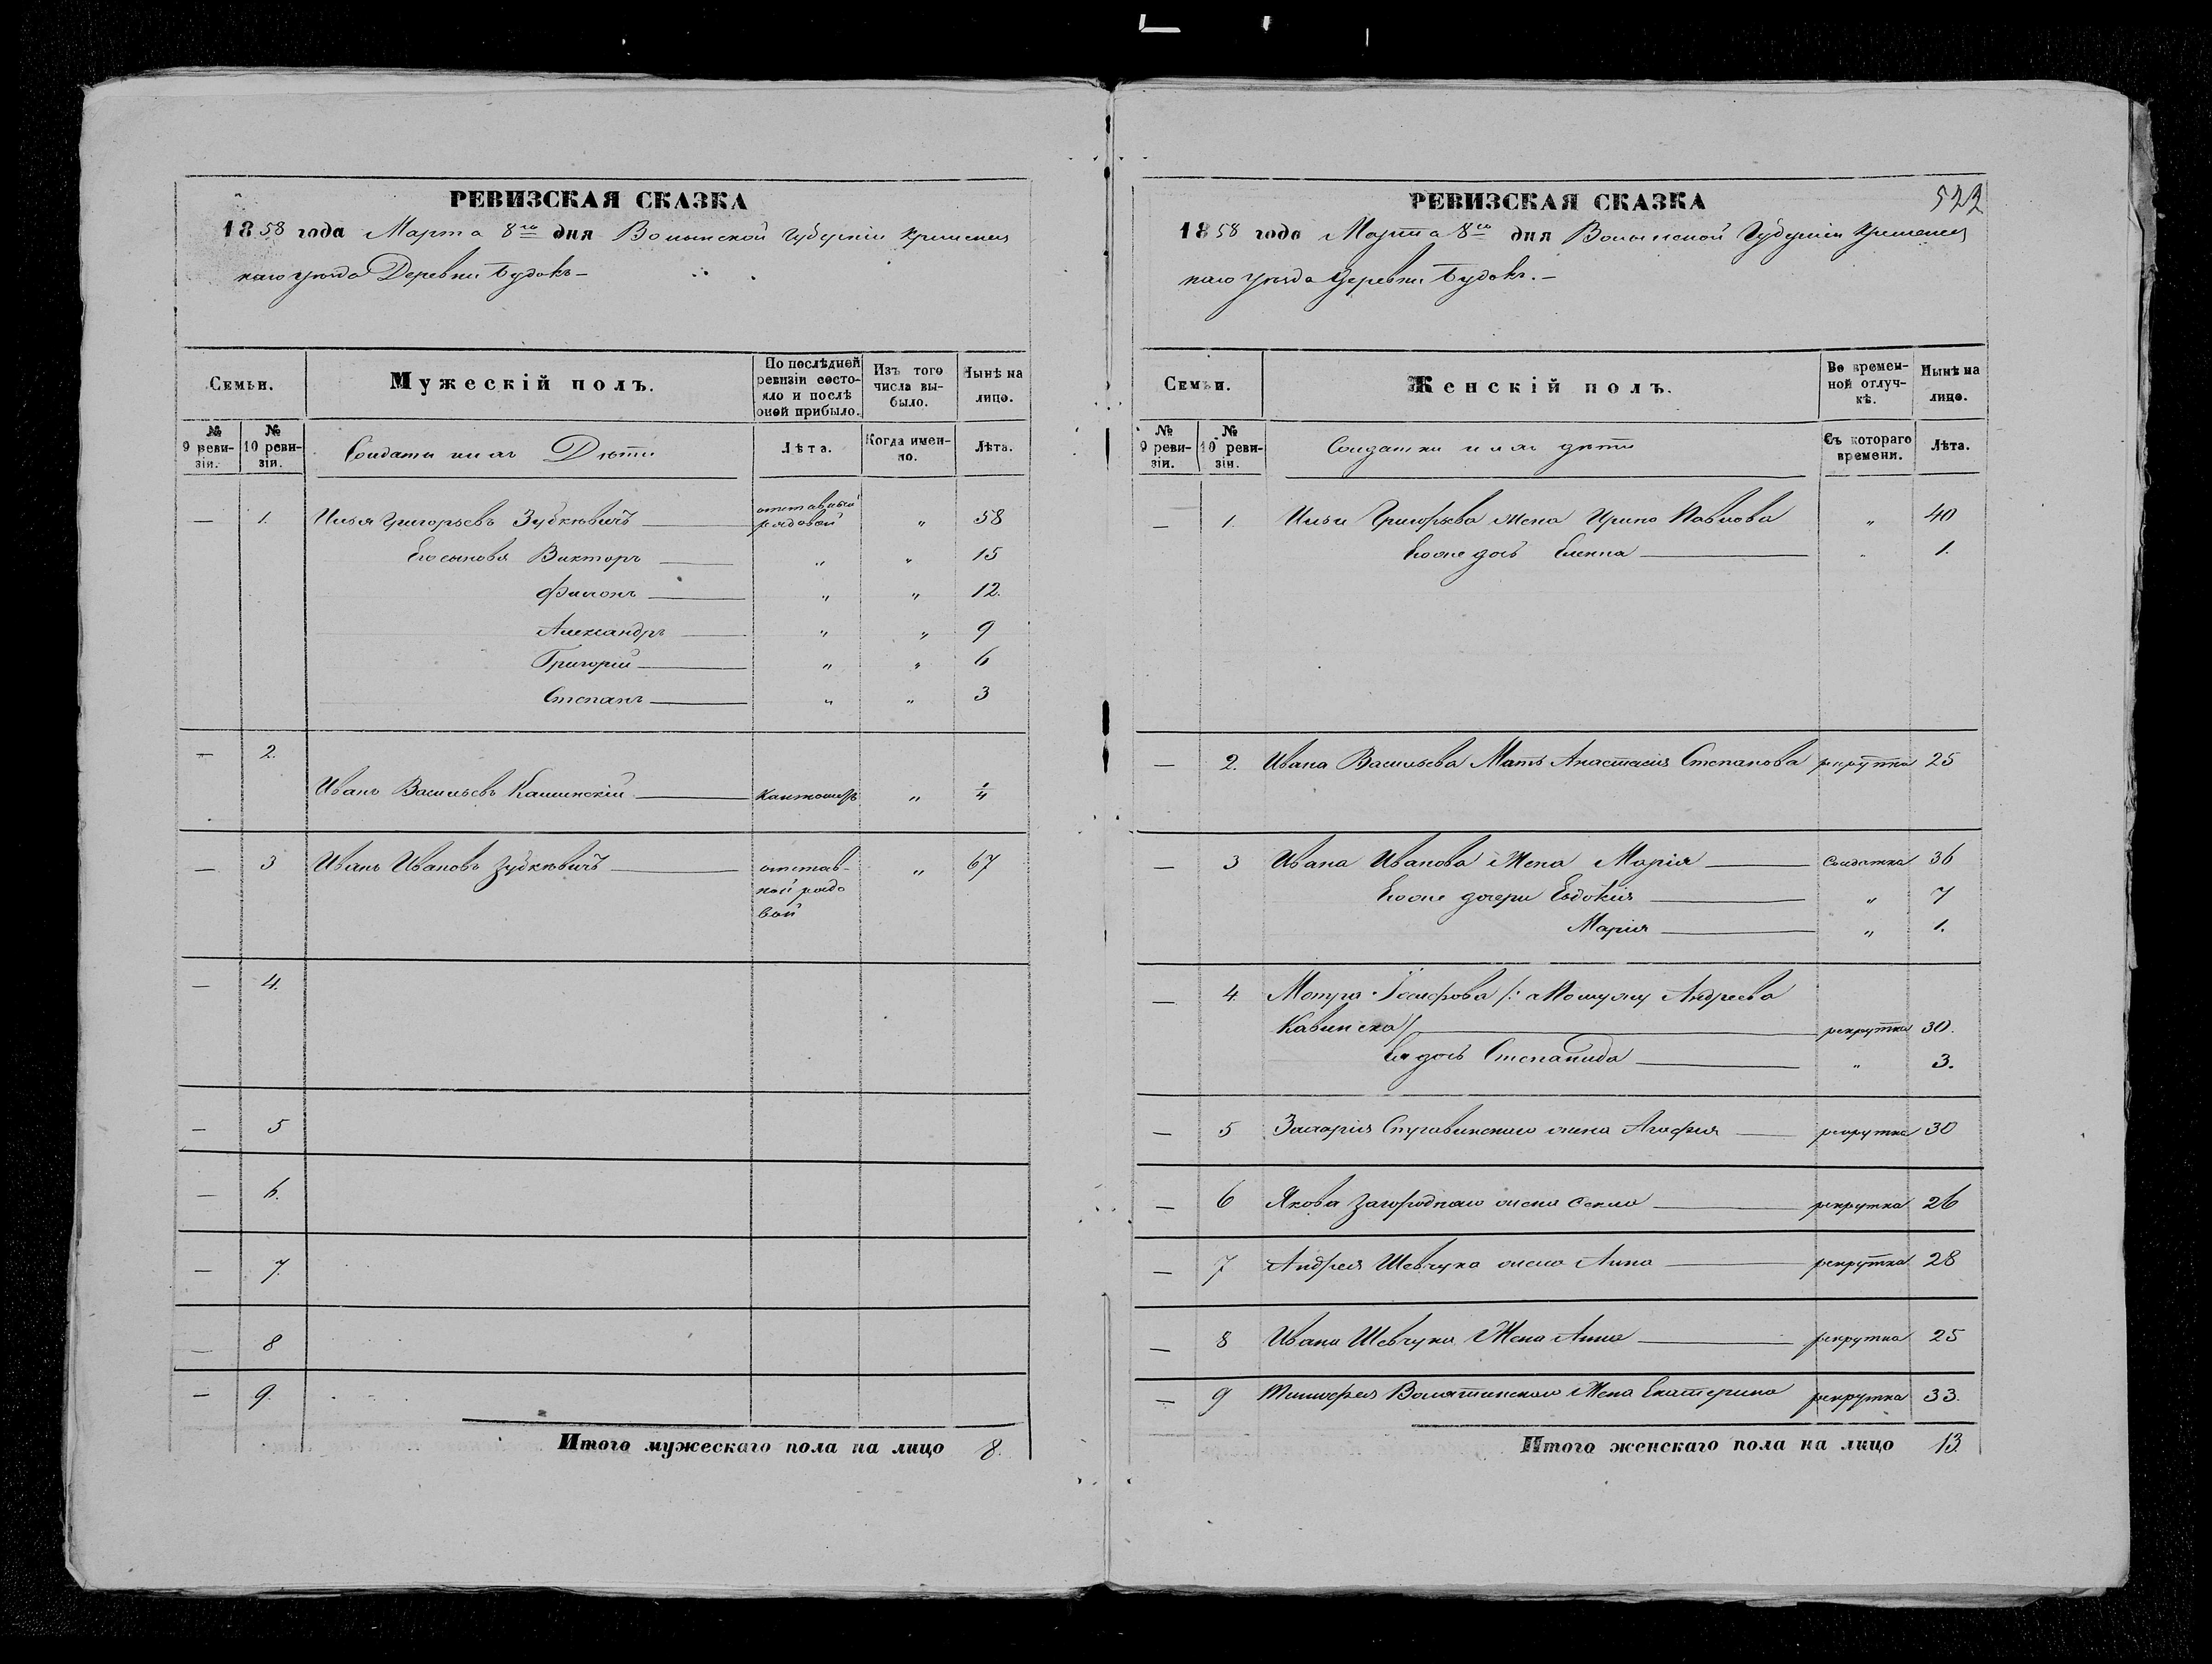 РЕВИЗСКАЯ СКАЗКА
1858 года Марта 8го дня Волынской Губерніи Кременец
каго уѣзда Деревни Будокъ
Семьи.
Мужескій полъ.
По послѣдней ревизіи состояло и послѣ оной прибыло.
Изъ того числа выбыло.
Нынѣ на лицо.
№ 9 ревизіи.
№ 10 ревизіи.
Солдаты и ихъ Дѣти
Лѣта.
Когда именно.
Лѣта.
— 1. Илья Григорьевъ Зубкѣвичъ отставный рядовой " 58
Его сыновя Викторъ " " 15
Филонъ " " 12.
Александръ " " 9
Григорій " " 6
Степанъ " " 3
— 2.
Иванъ Васильевъ Калинскій Кантонистъ "
— 3 Иванъ Ивановъ Зубкѣвичъ отстав- " 67
ной рядо
вой
— 4.
— 5
— 6.
— 7.
— 8
— 9.
Итого мужескаго пола на лицо 8.
РЕВИЗСКАЯ СКАЗКА
522
1858 года Марта 8го дня Волынской Губерніи Кременец
каго уѣзда Деревни Будокъ.
Семьи.
Женскій полъ.
Во временной отлучкѣ.
Нынѣ на лицо.
№ 9 ревизіи.
№ 10 ревизіи.
Солдатки и ихъ дѣти
Съ котораго времени.
Лѣта.
— 1. Ильи Григорьева Жена Ирина Павлова " 40
Его же дочь Еленна " 1.
— 2. Ивана Васильева Мать Анастасія Степанова рекрутка 25
— 3 Ивана Иванова Жена Марія Солдатка 36
Его же дочери Евдокія " 7
Марія " 1.
— 4. Мотря Іосифова /: а по мужу Андреева
рекрутка 30.
Ея дочь Степанида " 3.
— 5 Захарія жена Агафія рекрутка 30
— 6 Якова Загороднаго жена Текла рекрутка 26
— 7 Андрея Шевчука жена Анна рекрутка 28
— 8 Ивана Шевчука Жена Анна рекрутка 25
— 9 Тимофея Жена Екатерина рекрутка 33.
Итого женскаго пола на лицо 13.